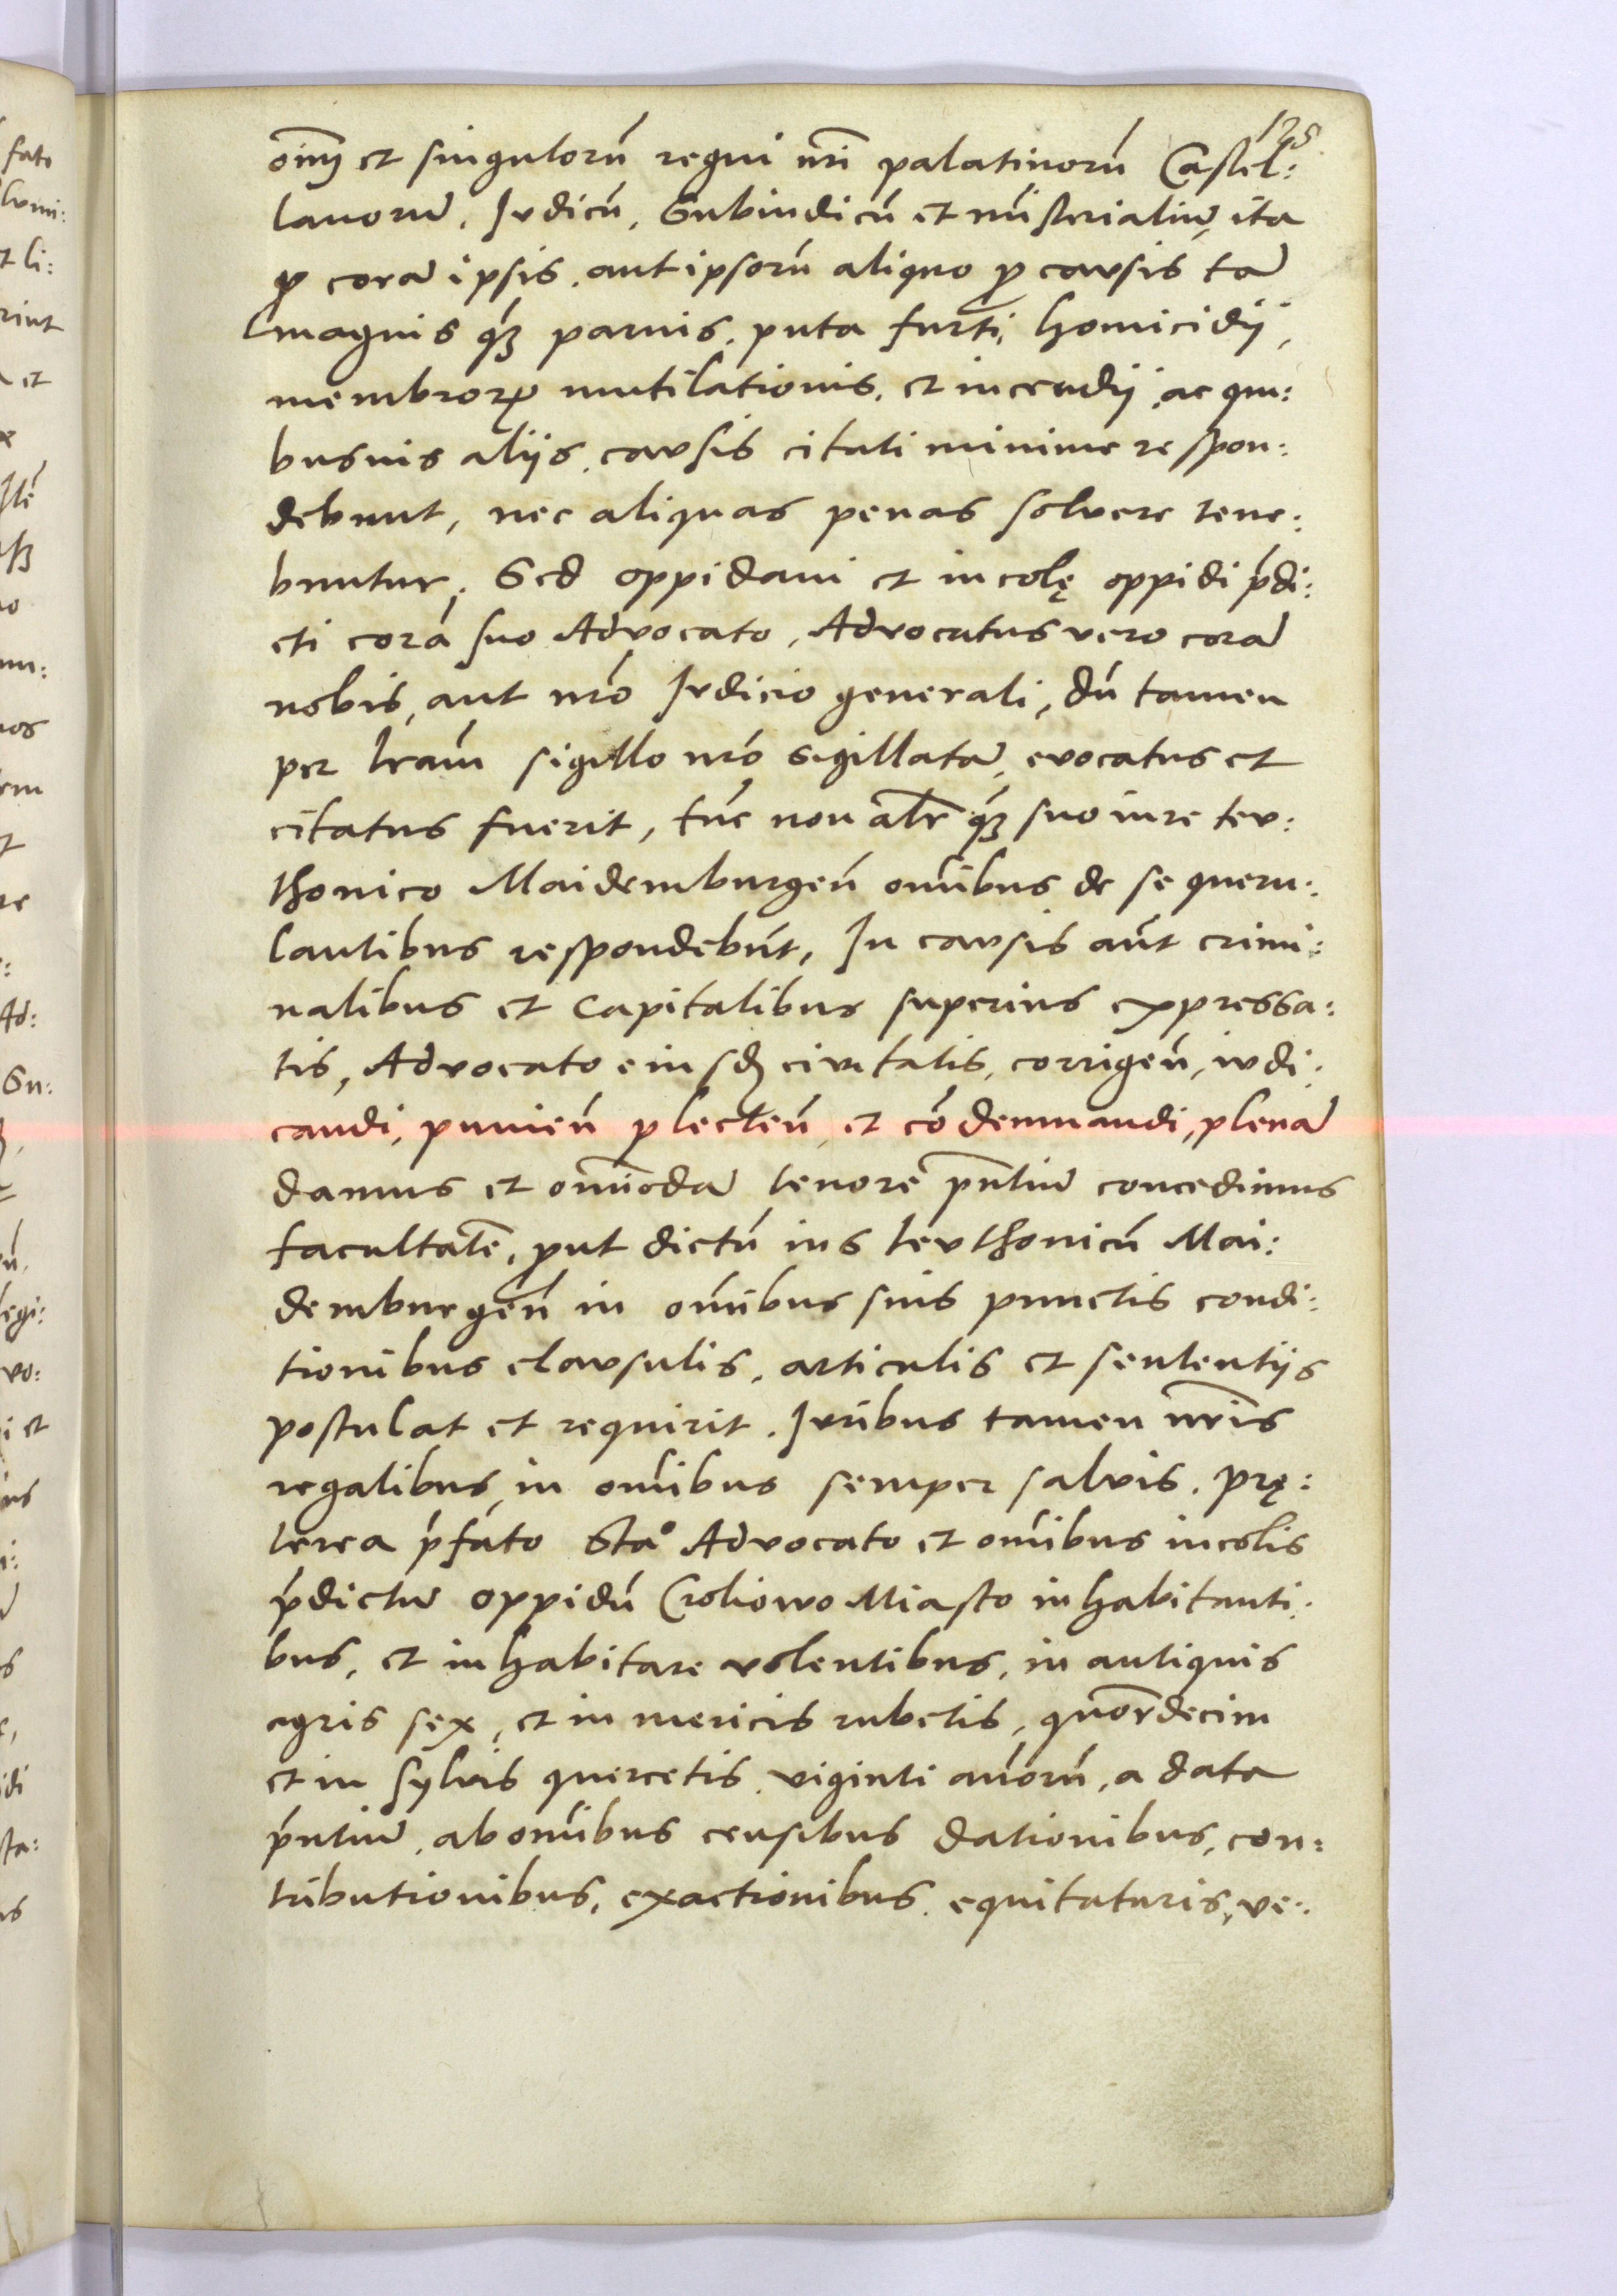 125
om̅iu̅ et singulorū regni nr̄i palatinorū Castel:
lanorum̄. Judicū, Subiudicū et mīsterialium̄, ita
ꝙ coram̄ ipsis. aut ipsorū aliquo ꝓ causis tam̄
magnis qʒ parvis. puta furti, homicidij,
membroꝝ mutilationis, et incendij, ac qui:
busvis alijs. causis citati minime respon:
debunt, nec aliquas penas solvere tene:
buntur. Sed oppidani et incolę oppidi p̄di:
cti corā suo Advocato, Advocatus vero coram̄
nobis, aut nr̄o Judicio generali, dū tamen
per lr̄am sigillo nr̄o sigillatam̄, evocatus et
citatus fuerit, tūc non alr̄ qʒ suo iure teu:
thonico Maidemburgen̄ om̄ibus de se queru:
lantibus respondebūt, In causis aūt crimi:
nalibus et capitalibus superius expressa:
tis, Advocato eiusd̄ civitatis, corrigen̄, iudi:
candi, punien̄ plecten̄, et cōdemnandi, plenam̄
damus et om̄imodam̄ tenore p̄ntium̄ concedimus
facultatē, ꝓut dictū ius teuthonicū Mai:
demburgen̄ in om̄ibus suis punctis condi:
tionibus clausulis, articulis et sententijs
postulat et requirit. Juribus tamen nr̄is
regalibus in om̄ibus semper salvis. Prę:
terea p̄fato Sta° Advocato et om̄ibus incolis
p̄dictum̄ oppidū Croliowo Miasto inhabitanti:
bus, et inhabitare volentibus, in antiquis
agris sex, et in mericis rubetis, quor̄decim
et in sylvis quercetis. viginti an̄orū, a data
p̄ntium̄, ab om̄ibus censibus dationibus, con:
tributionibus, exactionibus. equitaturis, ve: